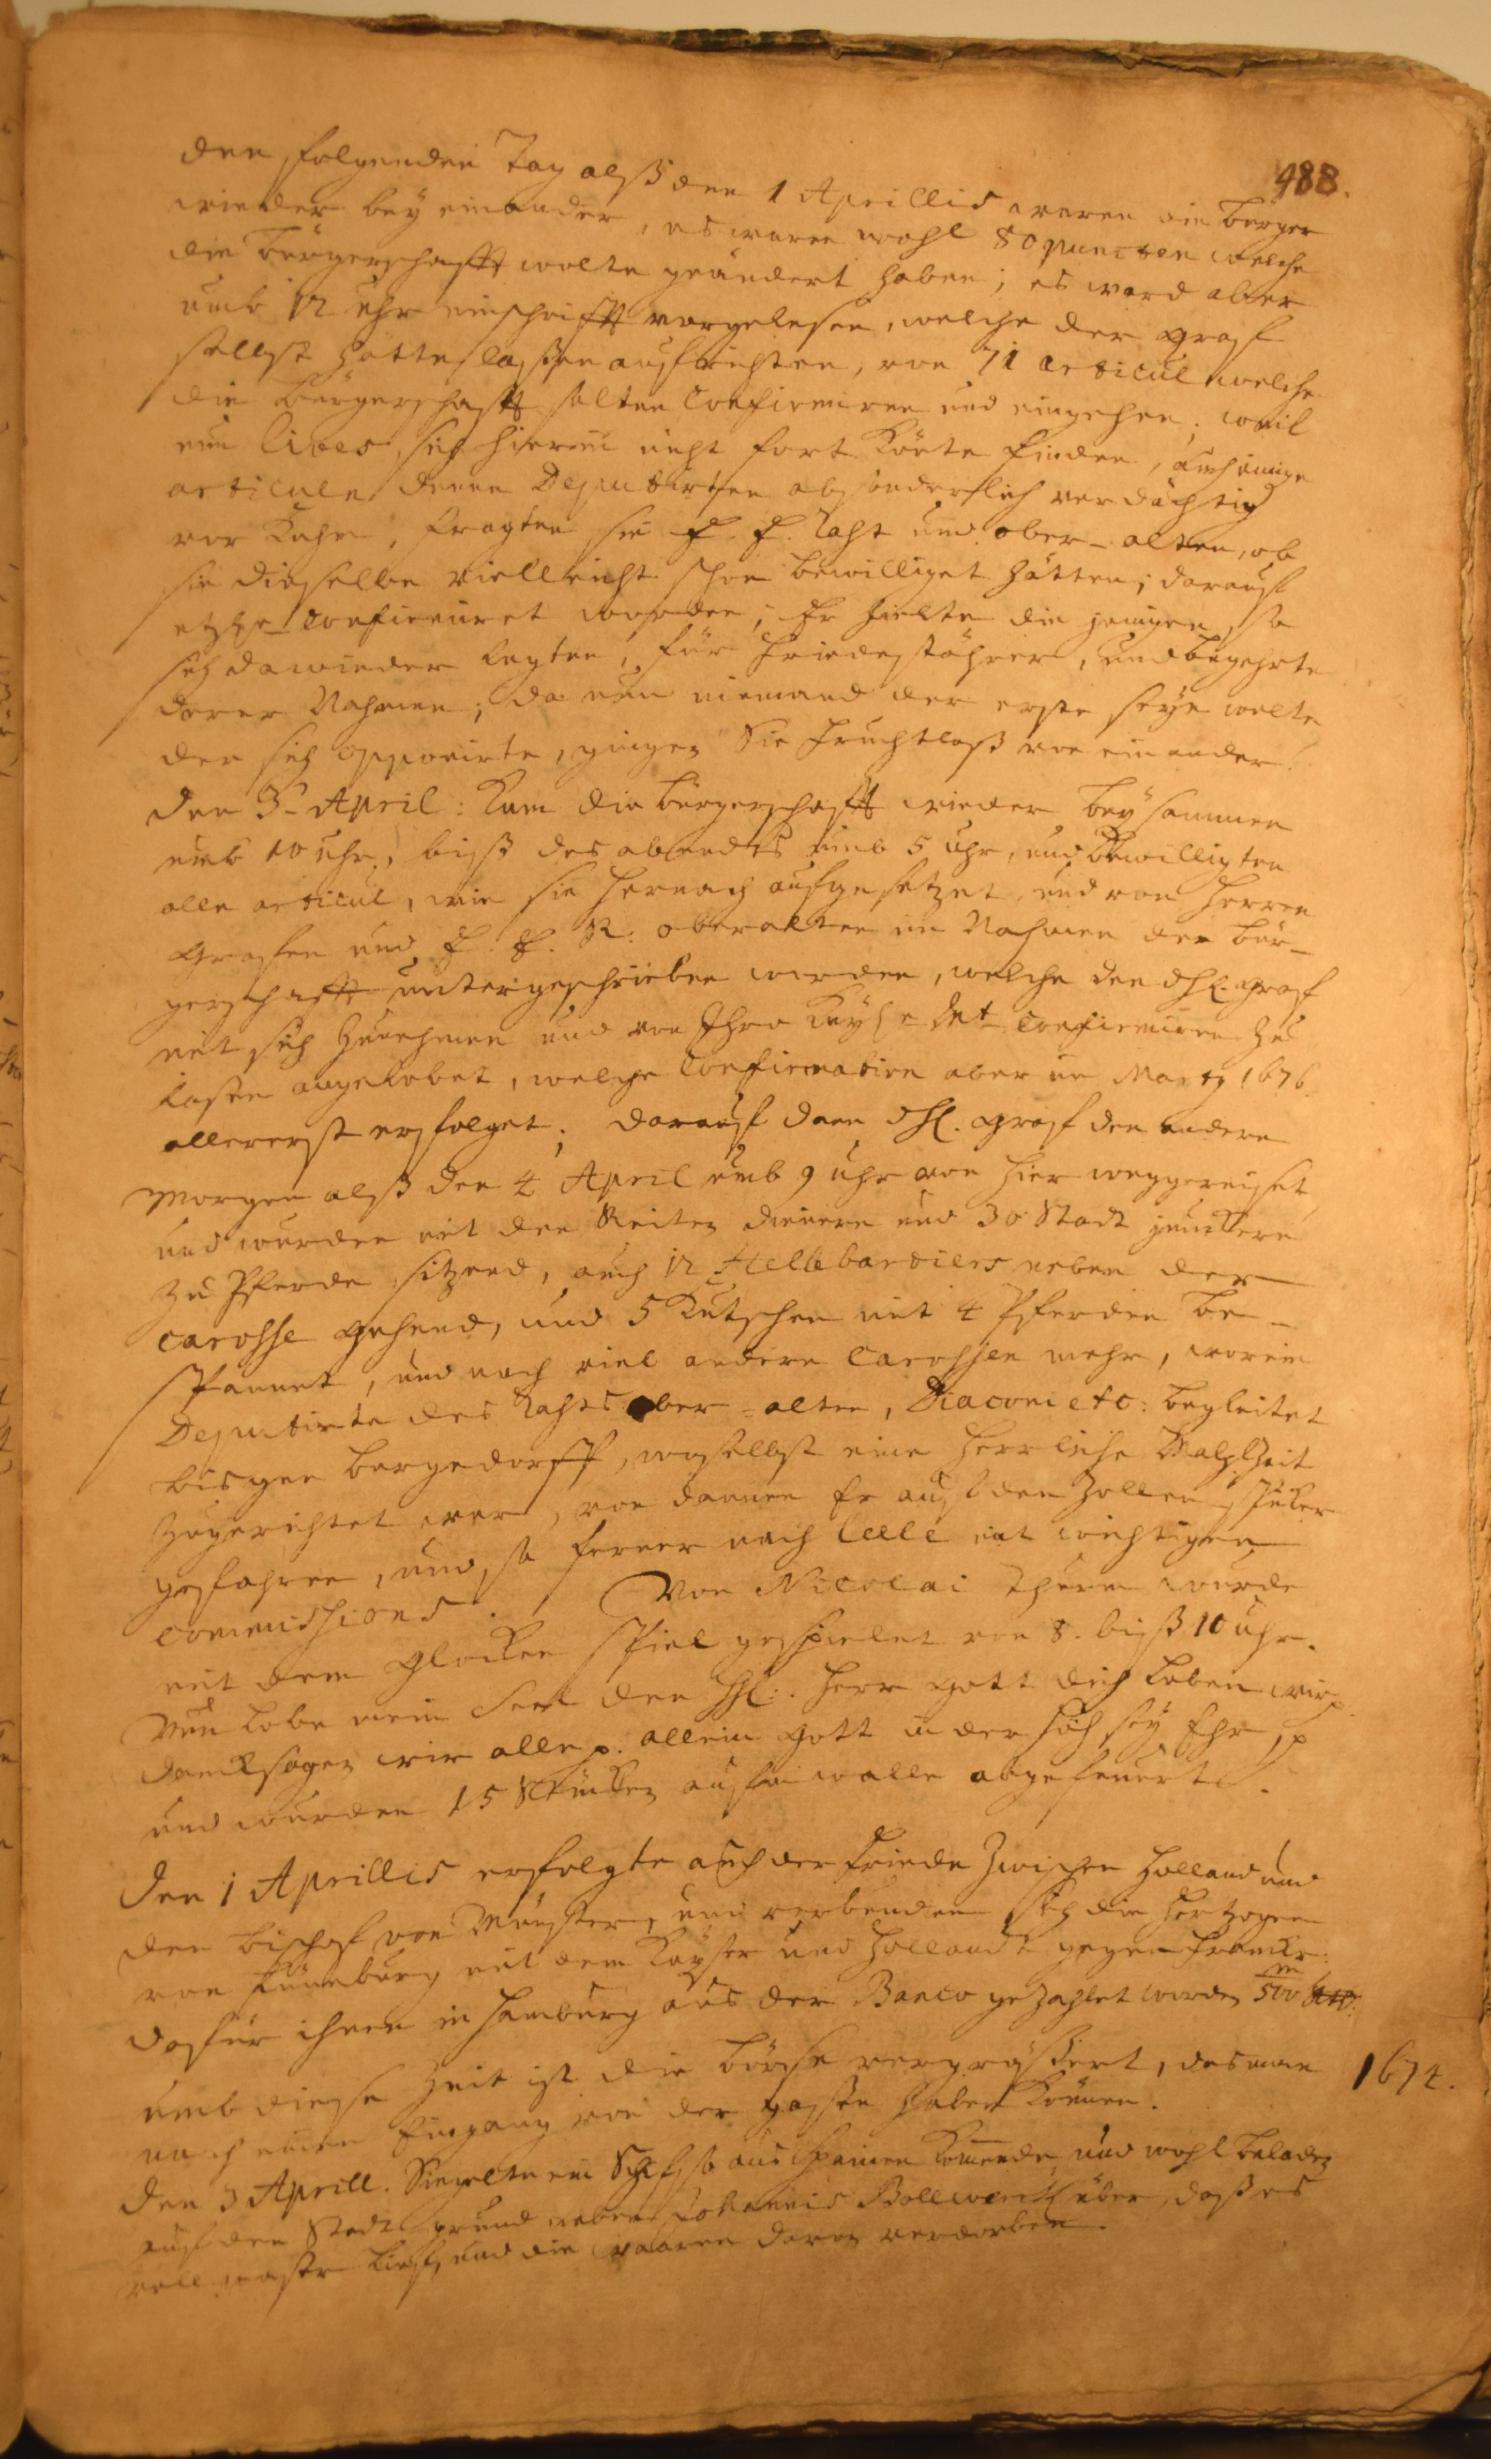 488.
den folgenden Tag alß den 1 Aprillis waren die bürger
wieder bey einander, es waren wohl 80 puncten welche
die bürgerschafft wolte geändert haben; es ward aber
umb 12 uhr ein schrifft vorgelesen, welche der graf
selbst hatte lassen aufrichten, von 71 articul welche
die bürgerschafft solten Confirmiren und eingehen; weil
nun lices sich hierin nicht fort könte finden, auch einige
articuln denen Deputirten absonderlich verdächtig
vor kahm, fragten sie E. E. Raht und ober-alten, ob
sie dieselbe vielleicht schon bewilliget hätten; darauf
Confirmiret worden; Er hielte die jenigen so
sich dawieder legten, für friedestöhrer, und begehrte
derer Nahmen; da nun niemand der erste seyn wolte
der sich opponirte, gingen Sie fruchtloß von einander.
den 3 April: kam die bürgerschafft wieder beysammen
umb 10 uhr, biß des abendts umb 5 uhr, und bewilligten
alle articul, wie sie hernach aufgesetzet und von Herren
Grafen und E. E. R. oberalten im Nahmen der bür-
gerschafft unterschrieben worden, welche der H. Graf
mit sich zunehmen und von Ihro Kays. Mt. Confirmiren zu
lassen angelobet, welche Confirmation aber im Marty 1676.
allererst erfolget; darauf dann H. graf den andern
Morgen alß den 4 April umb 9 uhr von hier weggereiset
und wurden mit den Reiten dienern und 30 Stadt junckern
zu Pferde sitzend, auch 12 Hellebardiers neben der
carosse gehend, und 5 Kutschen mit 4 Pferden be-
spannet, und noch viel andere Carossen mehr, worein
Deputirte des Rahts ober-alten, Diaconi etc: begleitet
bis gen bergedorff, woselbst eine herrliche Malzeit
zugerichtet war, von dannen Er auf den Zollen
gefahren, und so ferner nach Celle mit wichtigen
commissions. Von Nicolai thurm wurde
mit dem Glocken spiel gespielet von 8. biß 10 uhr.
Nun lobe mein Seel den H.: Herr Gott dich loben wir p.
dancksagen wir alle p. allein Gott in der höh sey Ehr p
und wurden 15 Stücken aufm walle abgefeuert.
Den 1 Aprillis erfolgte auch der friede zwischen Holland und
den bischof von Münster, und verbunden sich die Hertzogen
von Lüneburg mit dem Kayser und Holland gegen Franckr:
dafür ihnen in Hamburg aus der Banco gezahlet worden 500 m
umb diese Zeit ist die börse vergrössert, das man
noch einen Eingang von der gassen haben können.
1674.
Den 3 Aprill. Siegelte ein Schif so aus Spanien kommende und wohl beladen
auf den Stadt grund neben Johannis Bollwerck über, daß es
voll wasser lief, und die waaren darin verdorben.